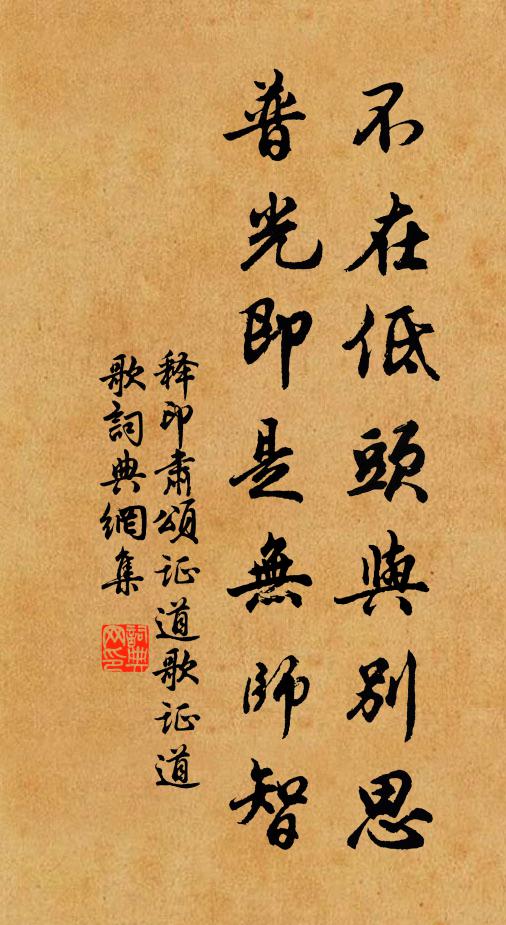 不在低頭與別思
普光即是無師智
释印肃頌证道歌证道
歌詞典網集
詞典网印